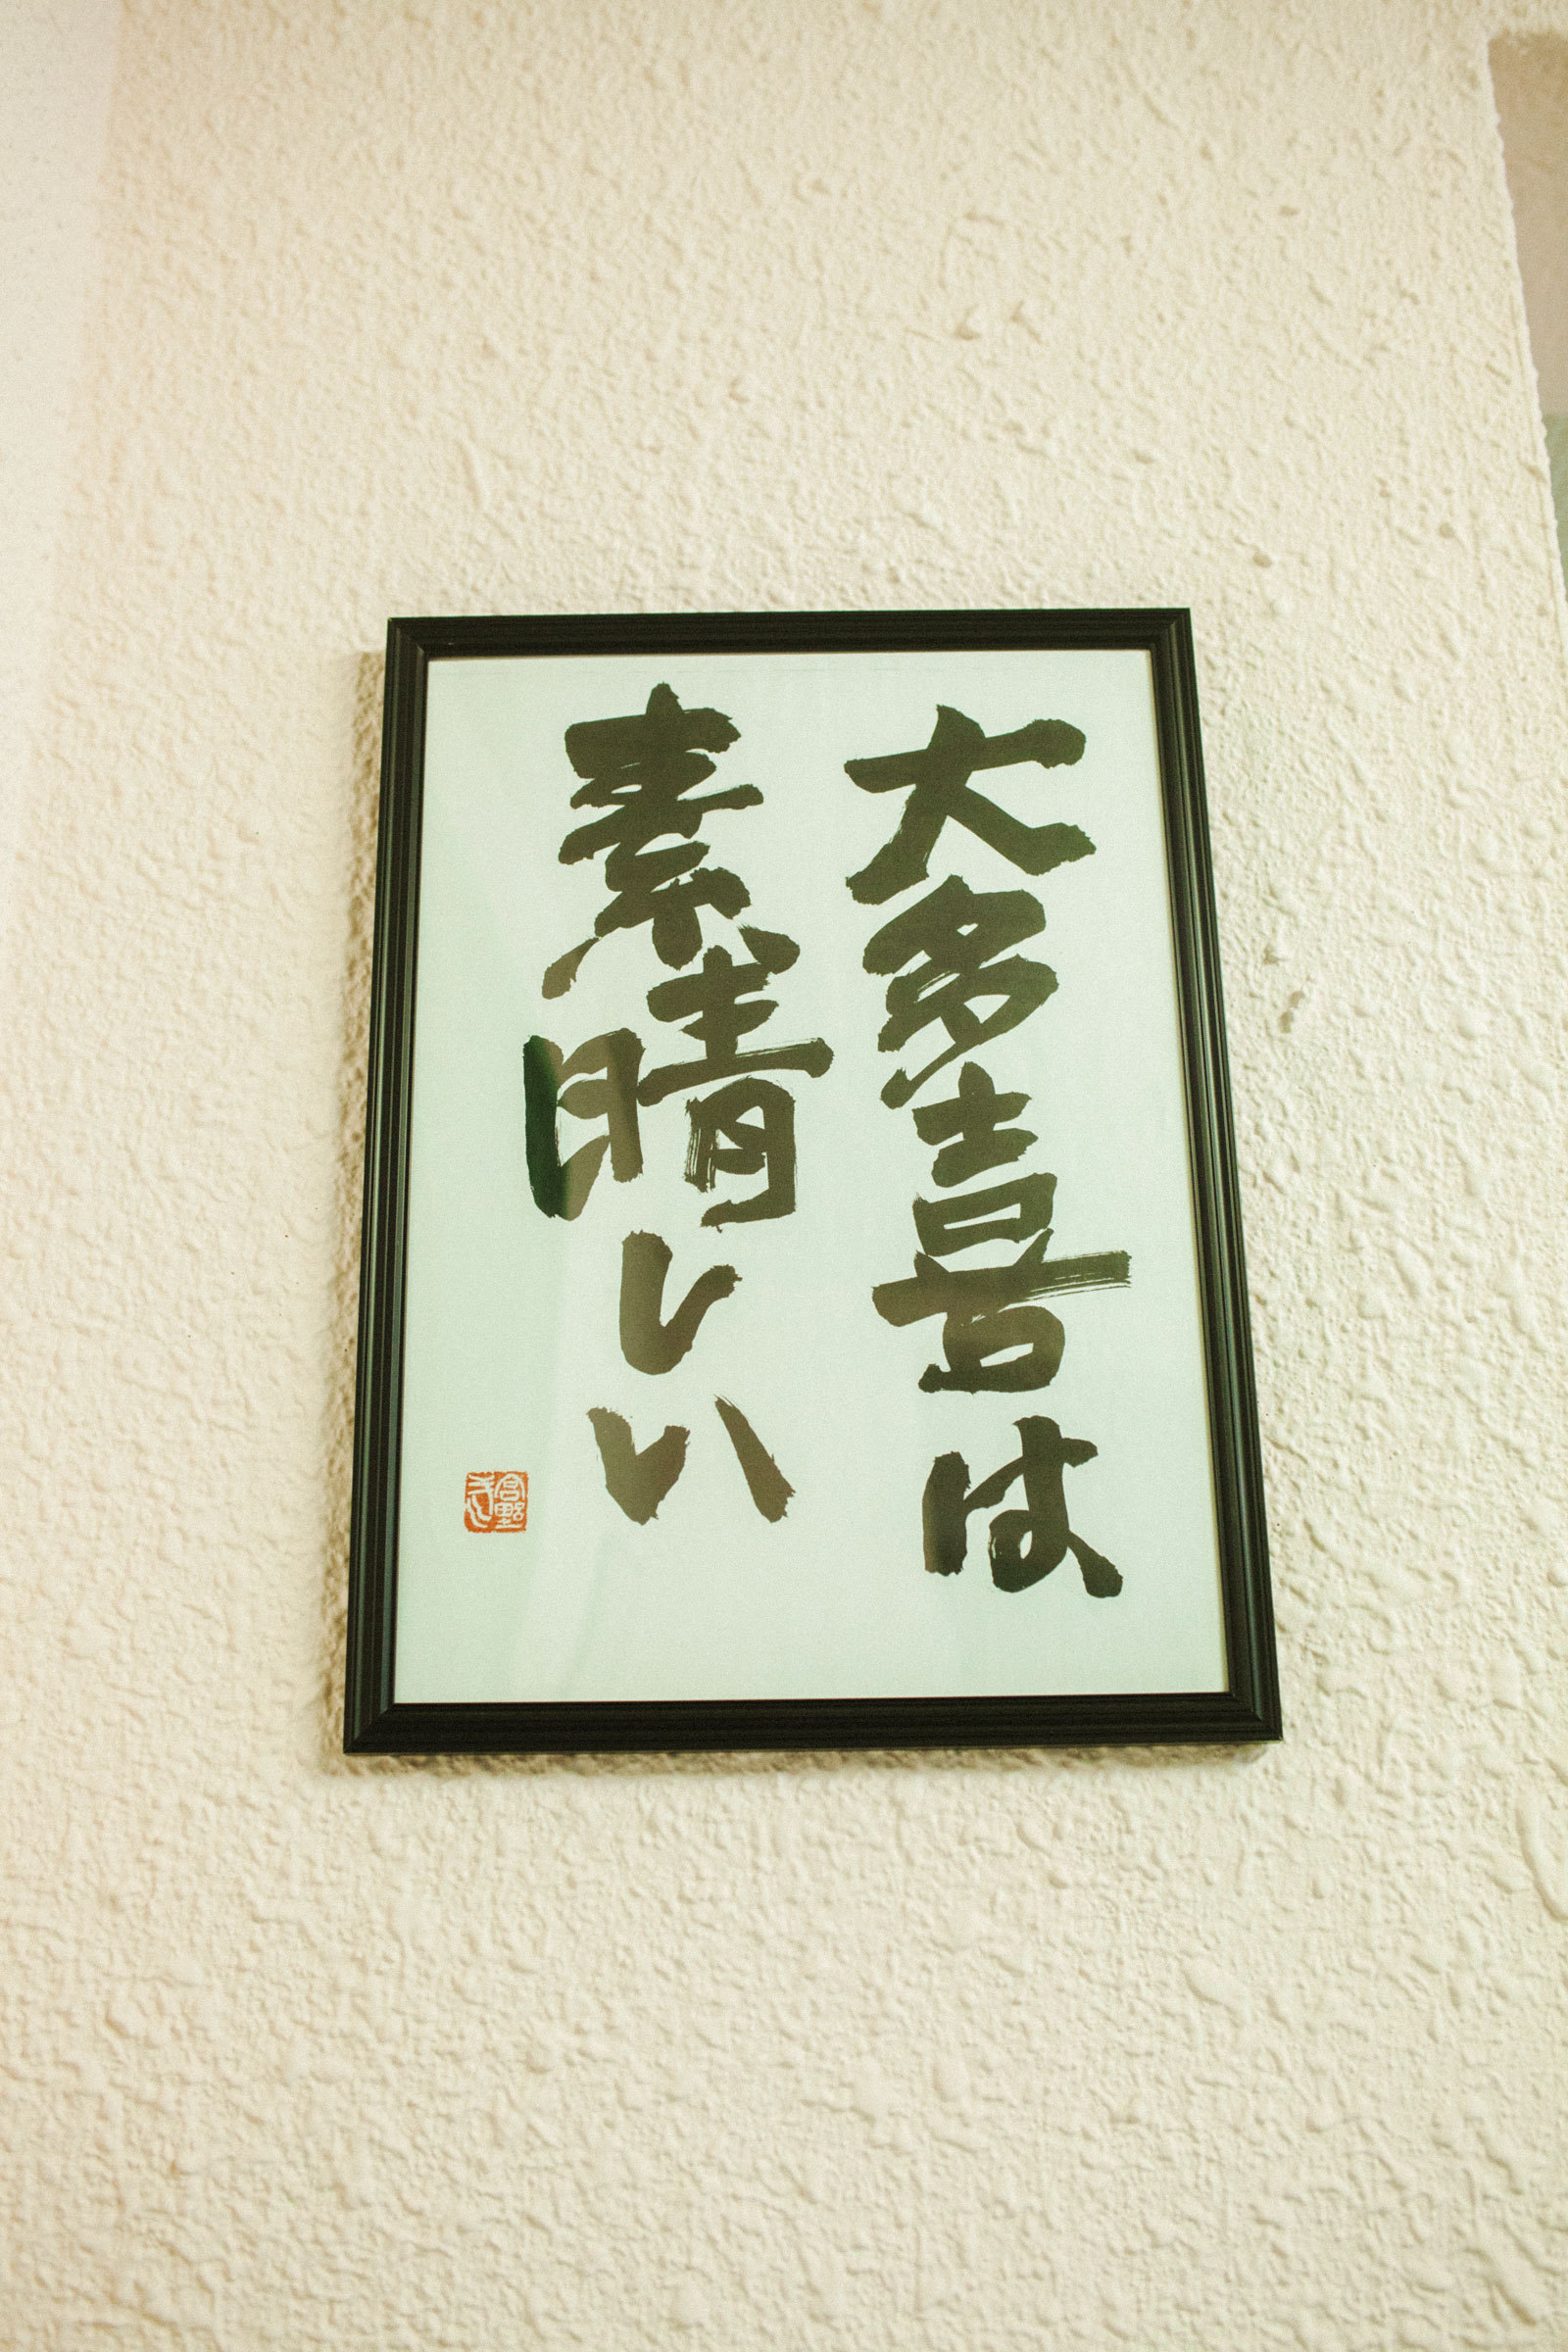 大多喜は
素晴しい